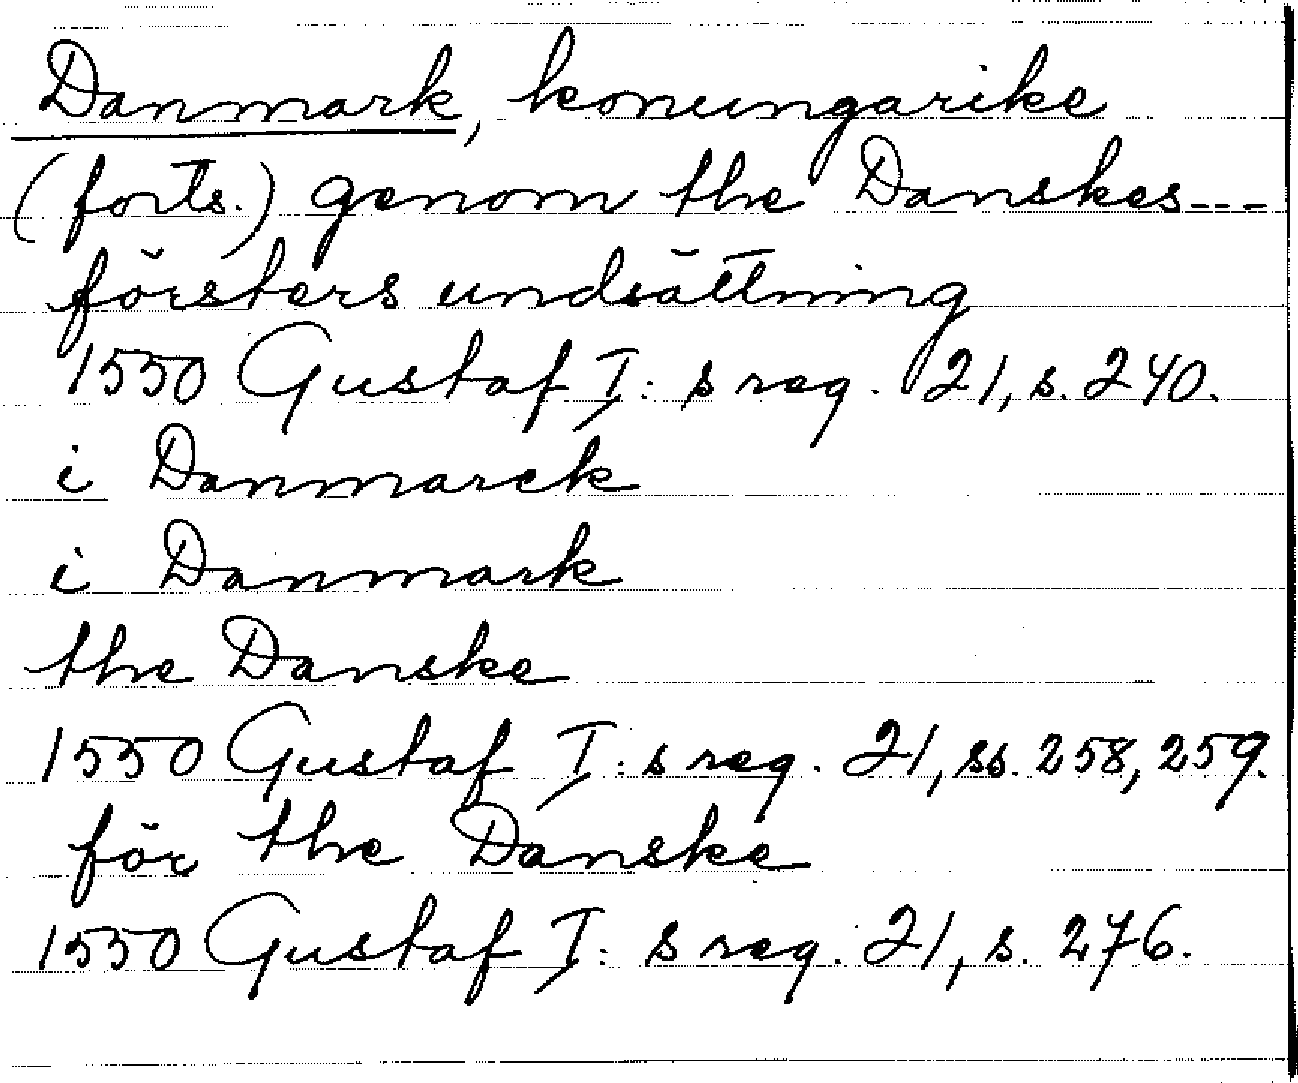 Danmark, konungarike
(forts.) genom the Danskes---
försters undsättning
1550 Gustaf I: s reg. 21, s. 240.
i Danmarck
i Danmark
the Danske
1550 Gustaf I: s reg. 21, ss. 258, 259.
för the Danske
1550 Gustaf I: s reg. 21, s. 276.